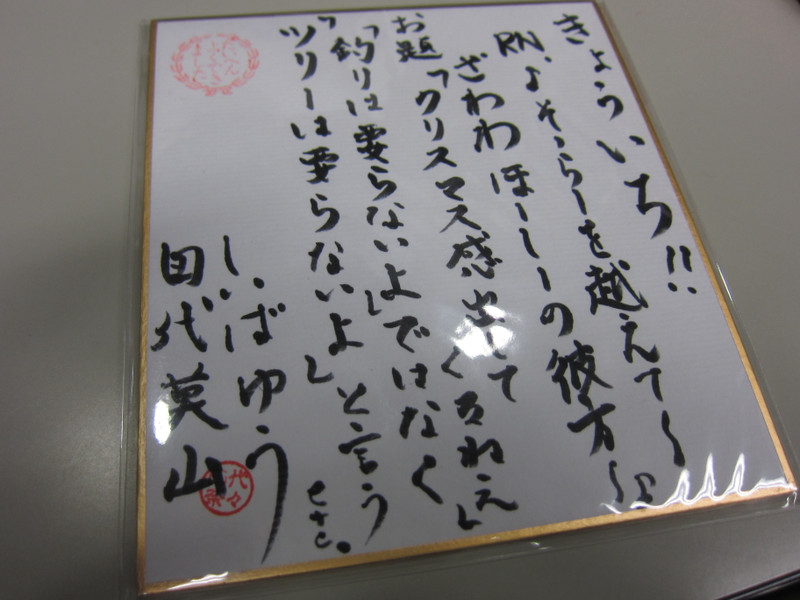 きょういち!!
RN.♪そっらーを越えて〜
ざわわ ほーしーの彼方〜♪
お題「クリスマス感出してくるねぇ」
「釣りは要らないよ」ではなく
「ツリーは要らないよ」と言う
etc.
しいば ゆう
田代英山